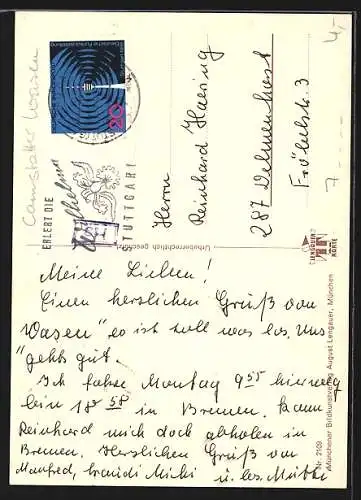 Cannstatter Wasen
Deutsche Funkausstellung
20
ERLEBT DIE
Wilhelma
STUTTGART
Herrn
Reinhard Haering
287 Delmenhorst
Fröbelstr. 3
Urheberrechtlich geschützt
KARTE
Nr. 2109
Münchener Bildkunstverlag August Lengauer, München
Meine Lieben!
Einen herzlichen Gruß vom
"Wasen" es ist toll was los. Uns
"gehts gut.
Ich fahre Montag 9 55 hier weg
bin 18 58 in Bremen. Kann
Reinhard mich doch abholen in
Bremen. Herzlichen Gruß von
Manfred, u. bes. Mutti